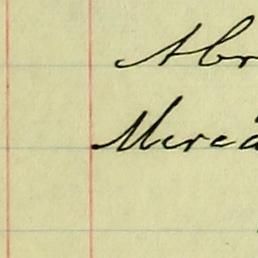 Abr
Merca